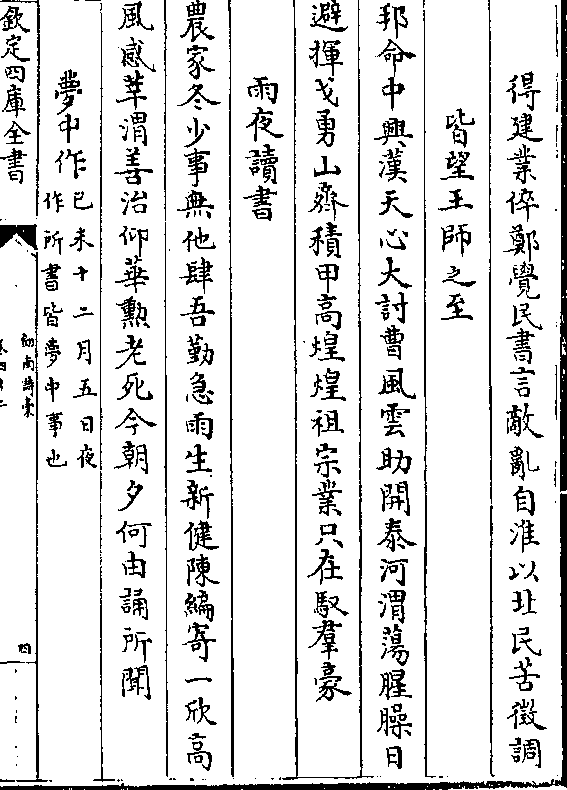 得建業倅鄭覺民書言敵亂自淮以北民苦徵調
皆望王師之至
邦命中興漢天心大討曹風雲助開泰河渭蕩腥臊日
避揮戈勇山齊積甲高煌煌祖宗業只在馭羣豪
雨夜讀書
農家冬少事無他肆吾勤急雨生新健陳編寄一欣高
風感莘渭善治仰華勲老死今朝夕何由誦所聞
夢中作己未十二月五日夜
作所書皆夢中事也
欽定四庫全書
劒南詩槀
四